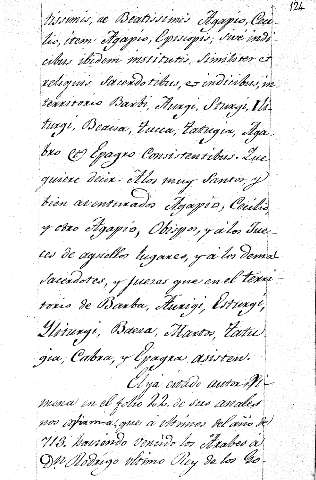 124
tissimis, ac Beatissimis Agapio, Ceci-
lio, item Agapio, Episcopis, sive indi-
cibus ibidem institutis, Similiter et
reliquis Sacerdotibus, et indicibus, in
territorio Barbi, Aurgi, Sturgi, Ili-
turgi, Beasa, tucca, tatugia, Aga-
bro & Epagro Consistentibus. Que
quiere decir. A los muy Santos, y
bien aventurados Agapio, Cecilio
y otro Agapio, Obispos, y á los Jue-
ces de aquellos lugares, y á los demas
sacerdotes, y jueces que en el terri-
torio de Barba, Aurigi, Esturgi,
Yliturgi, Baesa, Martos, tatu-
gia, Cabra, y Epagra asisten.
El ya citado autor Xi-
mena en el folio 22 de sus anales
nos afirma, que á ultimos del año de
713. haviendo vencido los Arabes a
Dn Rodrigo ultimo Rey de los Go-